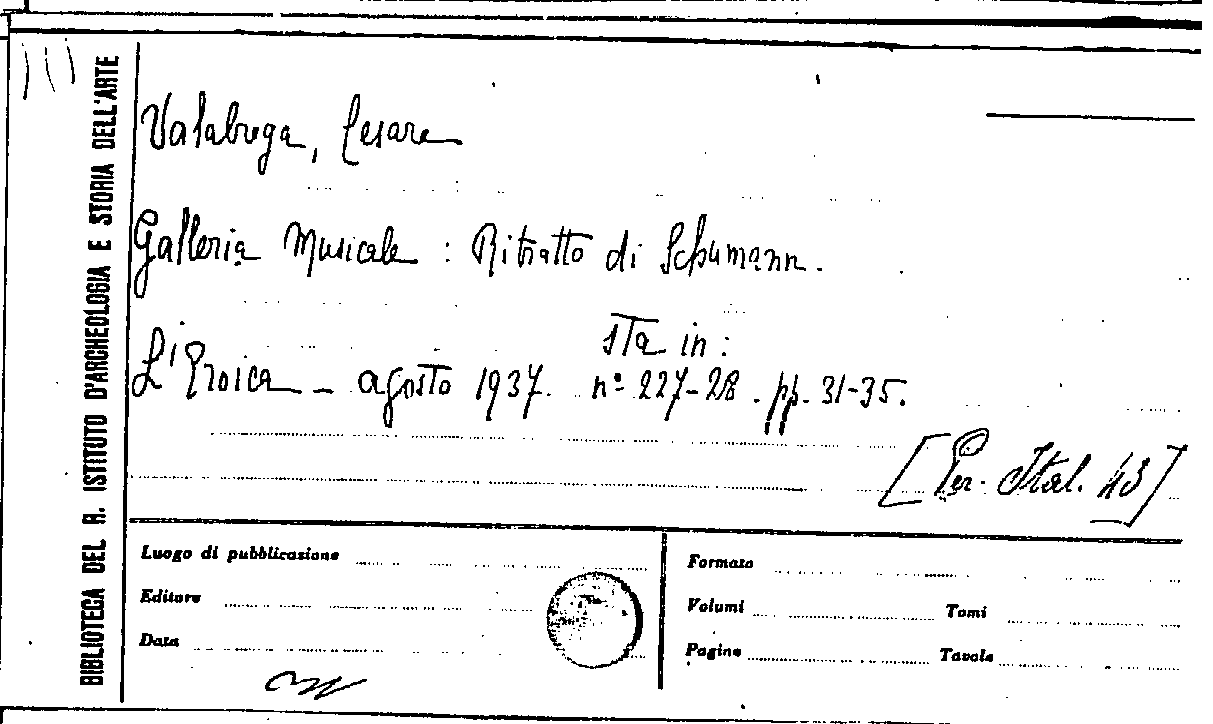 BIBLIOTECA DEL R. ISTITUTO D'ARCHEOLOGIA E STORIA DELL'ARTE
Valabrega, Cesare
Galleria Musicale : Ritratto di Schumann.
sta in :
L'Eroica - agosto 1937. nº 227-28. pp. 31-35.
[Per. Ital. 43]
Luogo di pubblicazione
Editore
Data
Formato
Volumi Tomi
Pagine Tavole